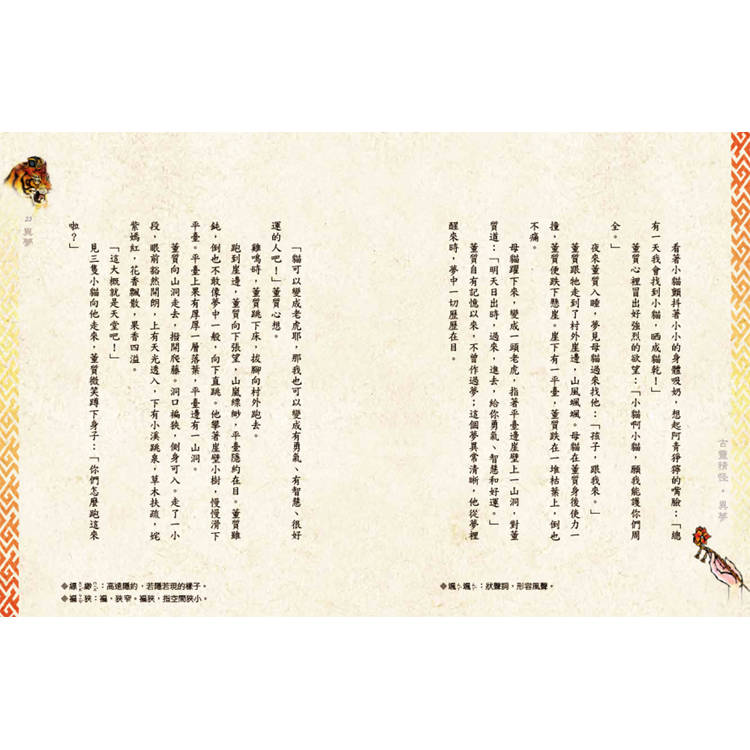 看著小貓顫抖著小小的身體吸奶，想起阿青猙獰的嘴臉：「總
有一天我會找到小貓，晒成貓乾！」
董質心裡冒出好強烈的欲望：「小貓啊小貓，願我能護你們周
全。」
夜來董質入睡，夢見母貓過來找他：「孩子，跟我來。」
董質跟牠走到了村外崖邊，山風颯颯。母貓在董質身後使力一
撞，董質便跌下懸崖。崖下有一平臺，董質跌在一堆枯葉上，倒也
不痛。
母貓躍下來，變成一頭老虎，指著平臺邊崖壁上一山洞，對董
質道：「明天日出時，過來，進去，給你勇氣、智慧和好運。」
董質自有記憶以來，不曾作過夢；這個夢異常清晰，他從夢裡
醒來時，夢中一切歷歷在目。
◆颯ㄙㄚˋ颯ㄙㄚˋ：狀聲詞，形容風聲。
古靈精怪・異夢
「貓可以變成老虎耶，那我也可以變成有勇氣、有智慧、很好
運的人吧！」董質心想。
雞鳴時，董質跳下床，拔腳向村外跑去。
跑到崖邊，董質向下張望，山嵐縹緲，平臺隱約在目。董質雖
鈍，倒也不敢像夢中一般，向下直跳。他攀著崖壁小樹，慢慢滑下
平臺。平臺上果有厚厚一層落葉，平臺邊有一山洞。
董質向山洞走去，撥開爬藤。洞口褊狹，側身可入。走了一小
段，眼前豁然開朗，上有天光透入，下有小溪跳泉，草木扶疏，奼
紫嫣紅，花香飄散，果香四溢。
「這大概就是天堂吧！」
見三隻小貓向他走來，董質微笑蹲下身子：「你們怎麼跑這來
啦？」
◆縹緲：高遠隱約，若隱若現的樣子。
◆褊狹：褊，狹窄。褊狹，指空間狹小。
23 異夢